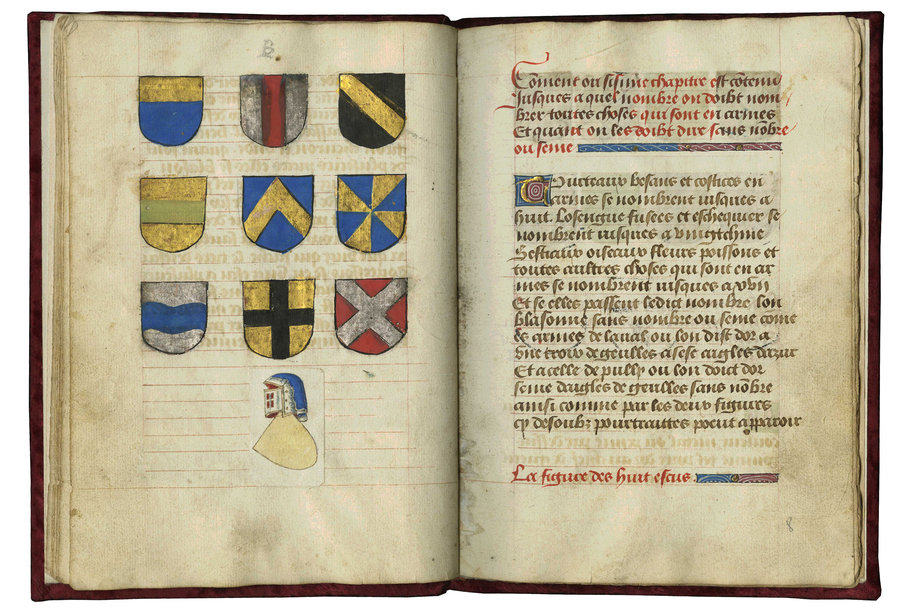 B
Coment ou sisime chapitre est cōtenu
Jusques a quel nombre on doibt nom
brer toutes choses qui sont en armes
Et quant on les doibt dire sans nōbre
ou seme
Tourteaux besans et costices en
armes se nombrent iusques a
huit. Losengue fusees et eschequier se
nombrent iusques a
Bestiaux oiseaux fleurs poissons et
toutes aultres choses qui sont en ar
mes se nombrent iusques a xvii
Et se elles passent ledict nombre lon
blasonne sans nombre ou seme come
es armes de laual ou lon dist dor a
vne croix de geulles a sese aigles dazur
Et a celle de pully ou lon doict dor
seme daigles de geulles sans nōbre
ainsi comme par les deux figures
cy desoubz pourtraittes poeut apparoir
La figure des huit escus
8